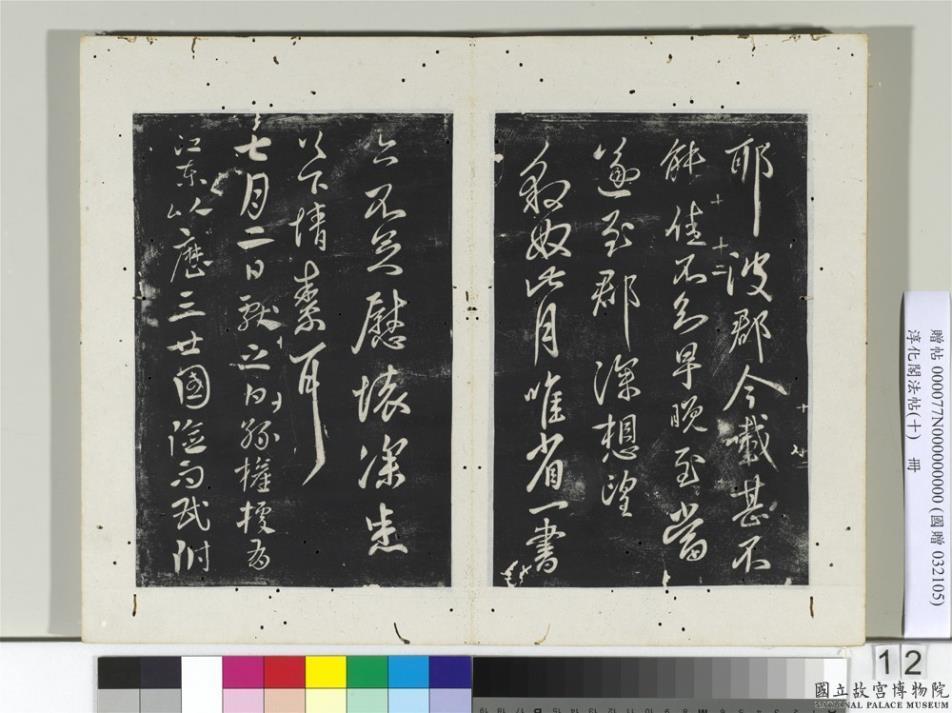 耶彼郡今載甚不
能佳不知早晚至當
遂至郡深想望
最奴此月唯省一書
亦不足慰懷深悉
以下情素耳
七月二日獻之白孫權據有
江東以歷三世國險而民附
贈帖 000077N000000000 (國贈 032105)
淳化閣法帖(十) 冊
12
國立故宮博物院
NATIONAL PALACE MUSEUM